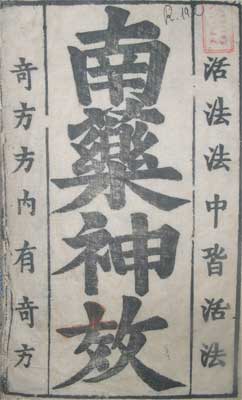 活法法中皆活法
南藥神效
奇方方內有奇方
R.192